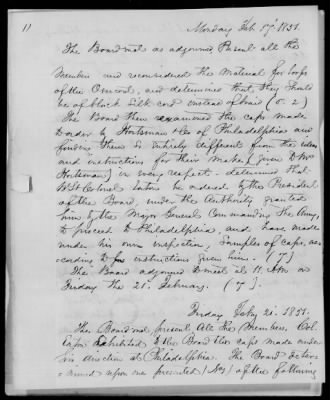 11
Monday Feb. 17th 1851.
The Board met as adjourned, Present all the
Members and reconsidered the Material for loops
of the Omcord, and determined that they should
be of black Silk cord instead of braid (5. 2)
The Board then examined the caps made
to order by Horstman & Co of Philadelphia and
finding them so entirely different from the ideas
and instructions for their make (given to Mr
Horstman) in every respect - determined that
Lt Colonel be ordered by the President
of the Board, under the Authority granted
him by the Major General Commanding the Army,
to proceed to Philadelphia, and have made
under his own inspection, Samples of caps, ac
cording to instructions given him. (7)
The Board adjourned to meet at 11. A.m. on
Friday the 21. February. (7).
Friday Feby 21. 1851.
The Board met, present, all the Members. Col.
exhibited to the Board the caps made under
his direction at Philadelphia. The Board
mined upon one presented (No ) of the following